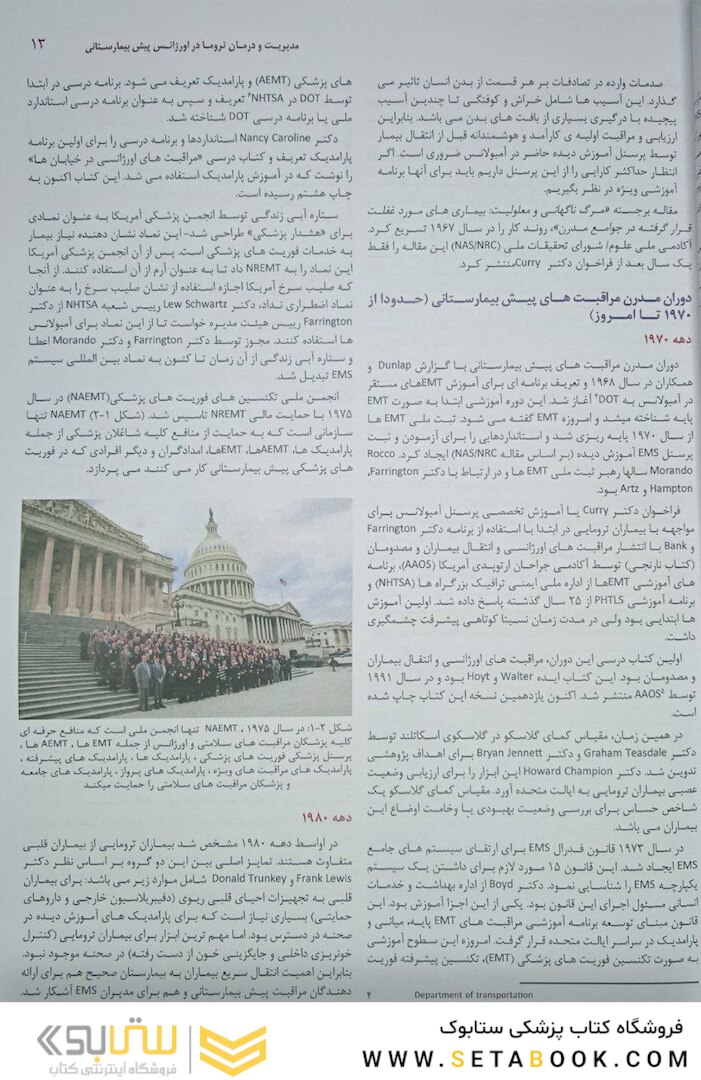 مدیریت و درمان تروما در اورژانس پیش بیمارستانی ۱۳
صدمات وارده در تصادفات بر هر قسمت از بدن انسان تاثیر می
گذارد. این آسیب ها شامل خراش و کوفتگی تا چندین آسیب
پیچیده با درگیری بسیاری از بافت های بدن می باشد. بنابراین
ارزیابی و مراقبت اولیه ی کارآمد و هوشمندانه قبل از انتقال بیمار
توسط پرسنل آموزش دیده حاضر در آمبولانس ضروری است. اگر
انتظار حداکثر کارایی را از این پرسنل داریم باید برای آنها برنامه
آموزشی ویژه در نظر بگیریم.
مقاله برجسته «مرگ ناگهانی و معلولیت: بیماری های مورد غفلت
قرار گرفته در جوامع مدرن»، روند کار را در سال ۱۹۶۷ تسریع کرد.
آکادمی ملی علوم/ شورای تحقیقات ملی (NAS/NRC) این مقاله را فقط
یک سال بعد از فراخوان دکتر Curry منتشر کرد.
دوران مدرن مراقبت های پیش بیمارستانی (حدودا از
۱۹۷۰ تا امروز)
دهه ۱۹۷۰
دوران مدرن مراقبت های پیش بیمارستانی با گزارش Dunlap و
همکاران در سال ۱۹۶۸ و تعریف برنامه ای برای آموزش EMTهای مستقر
در آمبولانس به DOT⁴ آغاز شد. این دوره آموزشی ابتدا به صورت EMT
پایه شناخته میشد و امروزه EMT گفته می شود. ثبت ملی EMT ها
از سال ۱۹۷۰ پایه ریزی شد و استانداردهایی را برای آزمودن و ثبت
پرسنل EMS آموزش دیده (بر اساس مقاله NAS/NRC) ایجاد کرد. Rocco
Morando سالها رهبر ثبت ملی EMT ها و در ارتباط با دکتر Farrington،
Hampton و Artz بود.
فراخوان دکتر Curry با آموزش تخصصی پرسنل آمبولانس برای
مواجهه با بیماران ترومایی در ابتدا با استفاده از برنامه دکتر Farrington
و Bank با انتشار مراقبت های اورژانسی و انتقال بیماران و مصدومان
(کتاب نارنجی) توسط آکادمی جراحان ارتوپدی آمریکا (AAOS)، برنامه
های آموزشی EMTها از اداره ملی ایمنی ترافیک بزرگراه ها (NHTSA) و
برنامه آموزشی PHTLS از ۲۵ سال گذشته پاسخ داده شد. اولین آموزش
ها ابتدایی بود ولی در مدت زمان نسبتا کوتاهی پیشرفت چشمگیری
داشت.
اولین کتاب درسی این دوران، مراقبت های اورژانسی و انتقال بیماران
و مصدومان بود. این کتاب ایده Walter و Hoyt بود و در سال ۱۹۹۱
توسط AAOS⁵ منتشر شد. اکنون یازدهمین نسخه این کتاب چاپ شده
است.
در همین زمان، مقیاس کمای گلاسکو در گلاسکوی اسکاتلند توسط
دکتر Graham Teasdale و دکتر Bryan Jennett برای اهداف پژوهشی
تدوین شد. دکتر Howard Champion این ابزار را برای ارزیابی وضعیت
عصبی بیماران ترومایی به ایالت متحده آورد. مقیاس کمای گلاسکو یک
شاخص حساس برای بررسی وضعیت بهبودی یا وخامت اوضاع این
بیماران می باشد.
در سال ۱۹۷۳ قانون فدرال EMS برای ارتقای سیستم های جامع
EMS ایجاد شد. این قانون ۱۵ مورد لازم برای داشتن یک سیستم
یکپارچه EMS را شناسایی نمود. دکتر Boyd از اداره بهداشت و خدمات
انسانی مسئول اجرای این قانون بود. یکی از این اجزا آموزش بود. این
قانون مبنای توسعه برنامه آموزشی مراقبت های EMT پایه، میانی و
پارامدیک در سراسر ایالت متحده قرار گرفت. امروزه این سطوح آموزشی
به صورت تکنسین فوریت های پزشکی (EMT)، تکنسین پیشرفته فوریت
۴ Department of transportation
های پزشکی (AEMT) و پارامدیک تعریف می شود. برنامه درسی در ابتدا
توسط DOT در NHTSA تعریف و سپس به عنوان برنامه درسی استاندارد
ملی یا برنامه درسی DOT شناخته شد.
دکتر Nancy Caroline استانداردها و برنامه درسی را برای اولین برنامه
پارامدیک تعریف و کتاب درسی «مراقبت های اورژانسی در خیابان ها»
را نوشت که در آموزش پارامدیک استفاده می شد. این کتاب اکنون به
چاپ هشتم رسیده است.
ستاره آبی زندگی توسط انجمن پزشکی آمریکا به عنوان نمادی
برای «هشدار پزشکی» طراحی شد- این نماد نشان دهنده نیاز بیمار
به خدمات فوریت های پزشکی است. پس از آن انجمن پزشکی آمریکا
این نماد را به NREMT داد تا به عنوان آرم از آن استفاده کنند. از آنجا
که صلیب سرخ آمریکا اجازه استفاده از نشان صلیب سرخ را به عنوان
نماد اضطراری نداد، دکتر Lew Schwartz رییس شعبه NHTSA از دکتر
Farrington رییس هیئت مدیره خواست تا از این نماد برای آمبولانس
ها استفاده کنند. مجوز توسط دکتر Farrington و دکتر Morando اعطا
و ستاره آبی زندگی از آن زمان تا کنون به نماد بین المللی سیستم
EMS تبدیل شد.
انجمن ملی تکنسین های فوریت های پزشکی(NAEMT) در سال
۱۹۷۵ با حمایت مالی NREMT تاسیس شد. (شکل ۱-۲) NAEMT تنها
سازمانی است که به حمایت از منافع کلیه شاغلان پزشکی از جمله
پارامدیک ها، AEMTها، EMTها، امدادگران و دیگر افرادی که در فوریت
های پزشکی پیش بیمارستانی کار می کنند می پردازد.
شکل ۲-۱: در سال ۱۹۷۵، NAEMT تنها انجمن ملی است که منافع حرفه ای
کلیه پزشکان مراقبت های سلامتی و اورژانس از جمله EMT ها، AEMT ها،
پرسنل پزشکی فوریت های پزشکی، پارامدیک ها، پارامدیک های پیشرفته،
پارامدیک های مراقبت های ویژه، پارامدیک های پرواز، پارامدیک های جامعه
و پزشکان مراقبت های سلامتی را حمایت میکند
دهه ۱۹۸۰
در اواسط دهه ۱۹۸۰ مشخص شد بیماران ترومایی از بیماران قلبی
متفاوت هستند. تمایز اصلی بین این دو گروه بر اساس نظر دکتر
Frank Lewis و Donald Trunkey شامل موارد زیر می باشد: برای بیماران
قلبی به تجهیزات احیای قلبی ریوی (دفیبریلاسیون خارجی و داروهای
حمایتی) بسیاری نیاز است که برای پارامدیک های آموزش دیده در
صحنه در دسترس بود. اما مهم ترین ابزار برای بیماران ترومایی (کنترل
خونریزی داخلی و جایگزینی خون از دست رفته) در صحنه موجود نبود.
بنابراین اهمیت انتقال سریع بیماران به بیمارستان صحیح هم برای ارائه
دهندگان مراقبت پیش بیمارستانی و هم برای مدیران EMS آشکار شد.
فروشگاه کتاب پزشکی ستابوک
WWW.SETABOOK.COM
ستابوک
فروشگاه اینترنتی کتاب